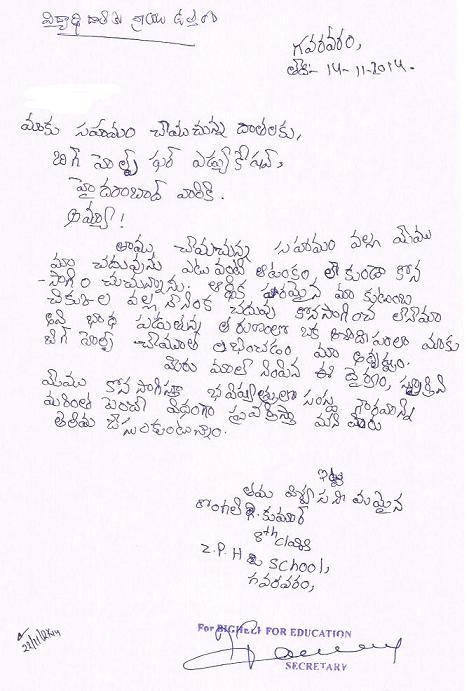 విద్యార్థి దాతకు వ్రాయు ఉత్తరం
గవరవరం,
తేది:- 14-11-2014.
మాకు సహాయం చేయుచున్న దాతలకు,
బిగ్ హెల్ప్ ఫర్ ఎడ్యుకేషన్,
హైదరాబాద్ వారికి.
అమ్మా!
తాము చేయుచున్న సహాయం వల్ల మేము
మా చదువును ఎటువంటి ఆటంకం లేకుండా కొన
-సాగించుచున్నాను. ఆర్థిక పరమైన మా కుటుంబ
చికుకుల వల్ల చదువు కొనసాగించ లేనేమో
అని బాధ పడుతున్న తరుణంలో ఒక ఆశాదీపంలా మాకు
బిగ్ హెల్ప్ చేయూత లభించడం మా అదృష్టం.
మీరు మాలో నింపిన ఈ ధైర్యం, స్ఫూర్తిని
మేము కొనసాగిస్తూ భవిష్యత్తులో సంస్థ గౌరవాన్ని
మరింత పెంచే విధంగా ప్రవర్తిస్తా మని మీకు
తెలియ చేసుకుంటున్నాం.
ఇట్లు
తమ విశ్వసనీయమైన
కుమార్
8th class
Z.P.H SCHOOL,
గవరవరం,
22/11/2014
For BIGHELP FOR EDUCATION
SECRETARY